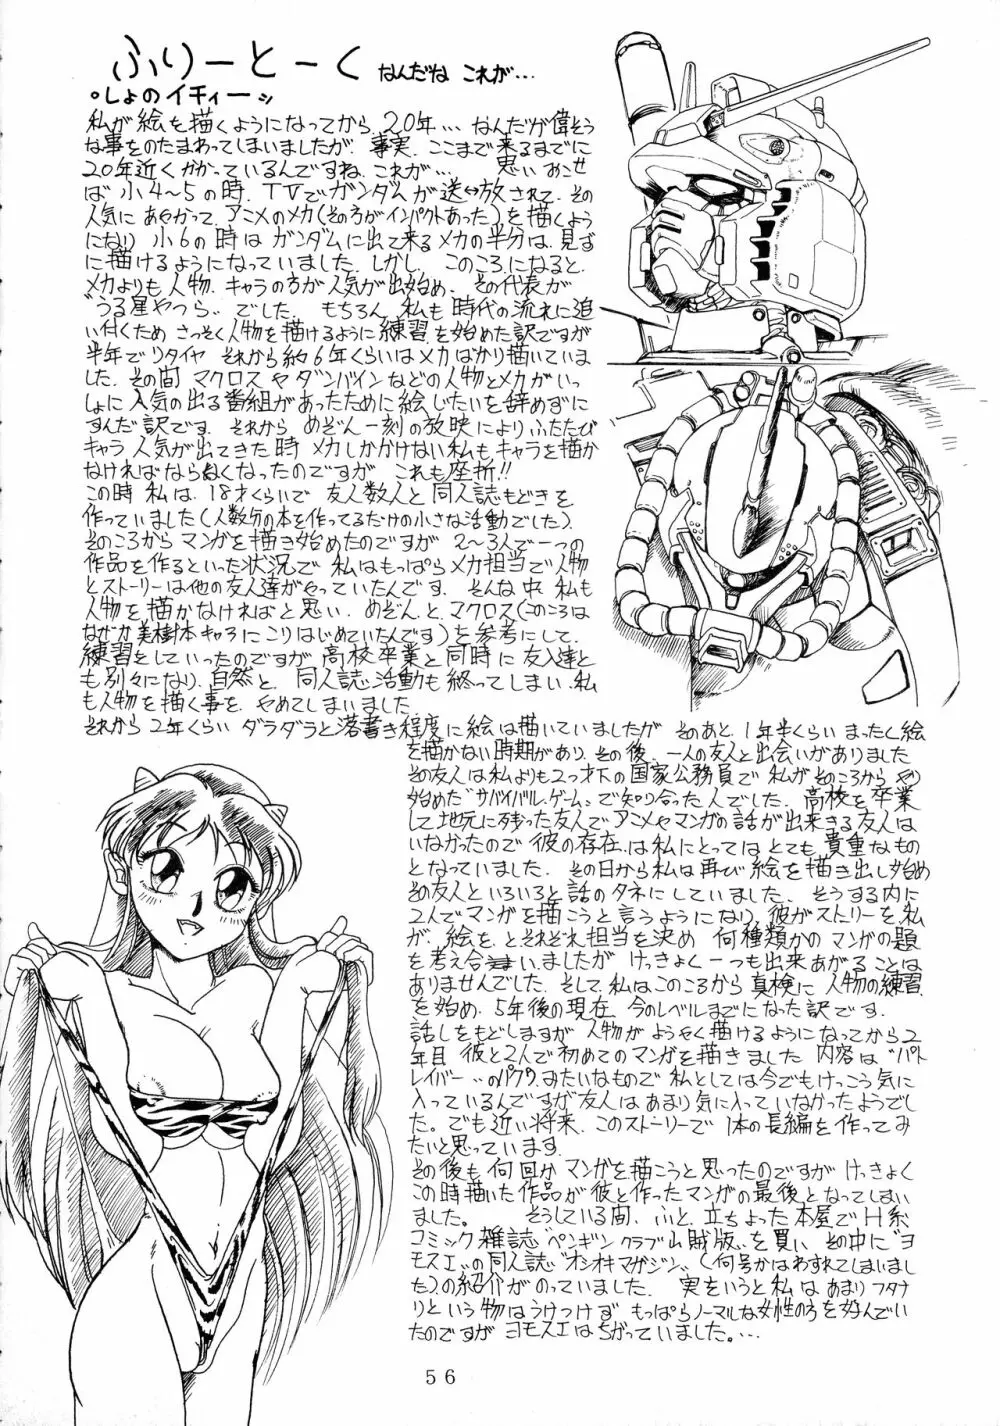 ふりーとーく なんだね これが…
。しょのイチィーッ
私が絵を描くようになってから20年… なんだが偉そう
な事をのたまわってしまいましたが、事実、ここまで来るまでに
20年近くかかっているんですね、これが… 思いおこせ
ば小4〜5の時、TVでガンダムが送放されて、その
人気にあやかって、アニメのメカ(その方がインパクトあった)を描くよう
になり 小6の時はガンダムに出て来るメカの半分は、見ず
に描けるようになっていました。しかし、このころになると、
メカよりも人物、キャラの方が人気が出始め、その代表が
〝うる星やつら〟でした。もちろん、私も時代の流れに追
い付くため さっそく人物を描けるように練習を始めた訳ですが
半年でリタイヤ それから約6年くらいはメカばかり描いていま
した。その間 マクロスやダンバインなどの人物とメカがいっ
しょに人気の出る番組があったために絵じたいを辞めずに
すんだ訳です。それから めぞん一刻の放映によりふたたび
キャラ人気が出てきた時 メカしかかけない私もキャラを描か
なければならぬくなったのですが これも座折!!
この時 私は、18才くらいで 友人数人と同人誌もどきを
作っていました(人数分の本を作ってるだけの小さな活動でした)。
そのころからマンガを描き始めたのですが 2〜3人で一つの
作品を作るといった状況で 私はもっぱらメカ担当で人物
とストーリーは他の友人達がやっていたんです。そんな中、私も
人物を描かなければと思い、めぞん、と、マクロス(このころは
なぜか美樹本キャラにこりはじめていたんです)を参考にして、
練習をしていったのですが 高校卒業と同時に友人達と
も別々になり、自然と、同人誌活動も終ってしまい、私
も人物を描く事を、やめてしまいました。
それから2年くらい ダラダラと落書き程度に絵は描いていましたが そのあと、1年半くらい まったく絵
を描かない時期があり、その後、一人の友人と出会いがありました
その友人は私よりも2つ才下の国家公務員で 私がそのころから や
始めた〝サバイバルゲーム〟で知り合った人でした。高校を卒業
して地元に残った友人でアニメやマンガの話が出来きる友人は
いなかったので 彼の存在は私にとってはとても貴重なもの
となっていました。その日から私は再び絵を描き出し始め
その友人といろいろと話のタネにしていました。そうする内に
2人でマンガを描こうと言うようになり、彼がストーリーを、私
が、絵を、とそれぞれ担当を決め 何種類かのマンガの題
を考え合いましたが けっきょく一つも出来あがることは
ありませんでした。そして、私はこのころから真検に人物の練習
を始め、5年後の現在、今のレベルまでになった訳です。
話しをもどしますが 人物がようやく描けるようになってから2
年目 彼と2人で初めてのマンガを描きました 内容は〝パト
レイバー〟のパクりみたいなもので 私としては今でもけっこう気に
入っているんですが友人は あまり気に入っていなかったようでし
た。でも近い将来、このストーリーで1本の長編を作ってみ
たいと思っています。
その後も何回か マンガを描こうと思ったのですが けっきょく
この時描いた作品が彼と作ったマンガの最後となってしまい
ました。 そうしている間、ふと、立ちよった本屋でH系
コミック雑誌〝ペンギンクラブ山賊版〟を買い その中に〝ヨ
モスエ〟の同人誌〝オシオキマガジン〟(何号かはわすれてしまいまし
た)の紹介がのっていました。 実をいうと私はあまりフタナ
リという物はうけつけず もっぱらノーマルな女性の方を好んでい
たのですが ヨモスエはちがっていました。…
56